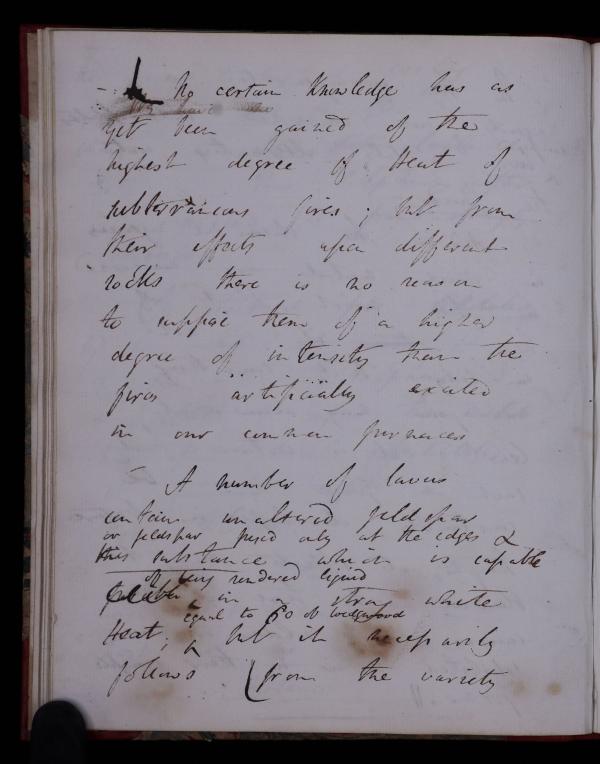 - No certain Knowledge has as
yet been gained of the
highest degree of Heat of
subterraneous fires; but from
their effects upon different
rocks there is no reason
to suppose them of a higher
degree of intensity than the
fires artificially excited
in our common furnaces
- A number of lavas
contain unaltered feldspar
or feldspar fused only at the edges &
this substance which is capable
of being rendered liquid
in a strong white
equal to 60 of Wedgwood
Heat; but it necessarily
follows from the variety